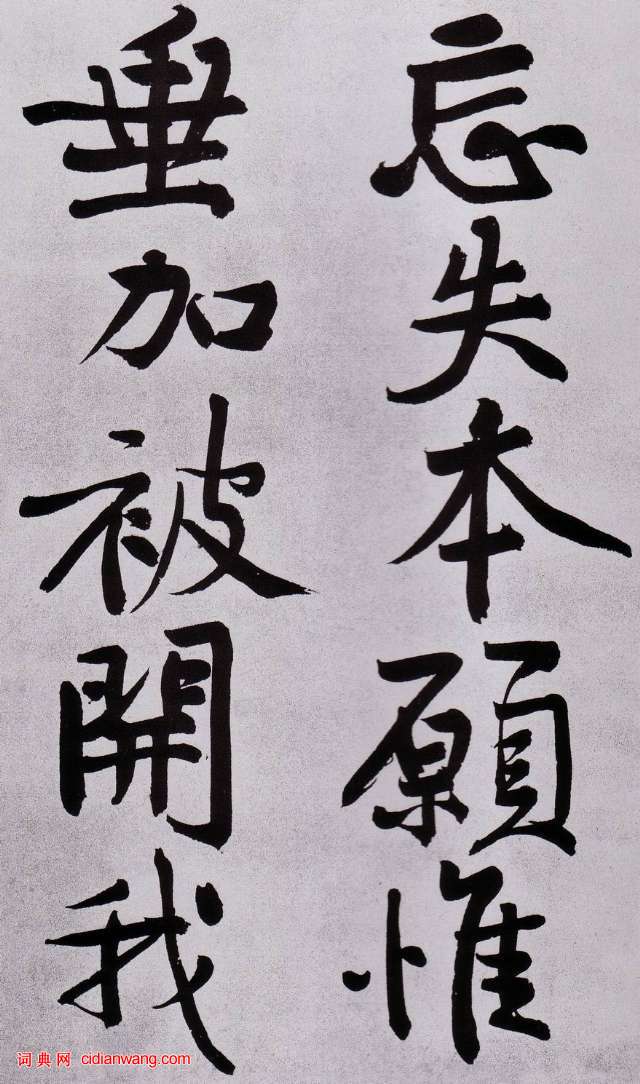 忘失本願惟
垂加被開我
词典网 cidianwang.com